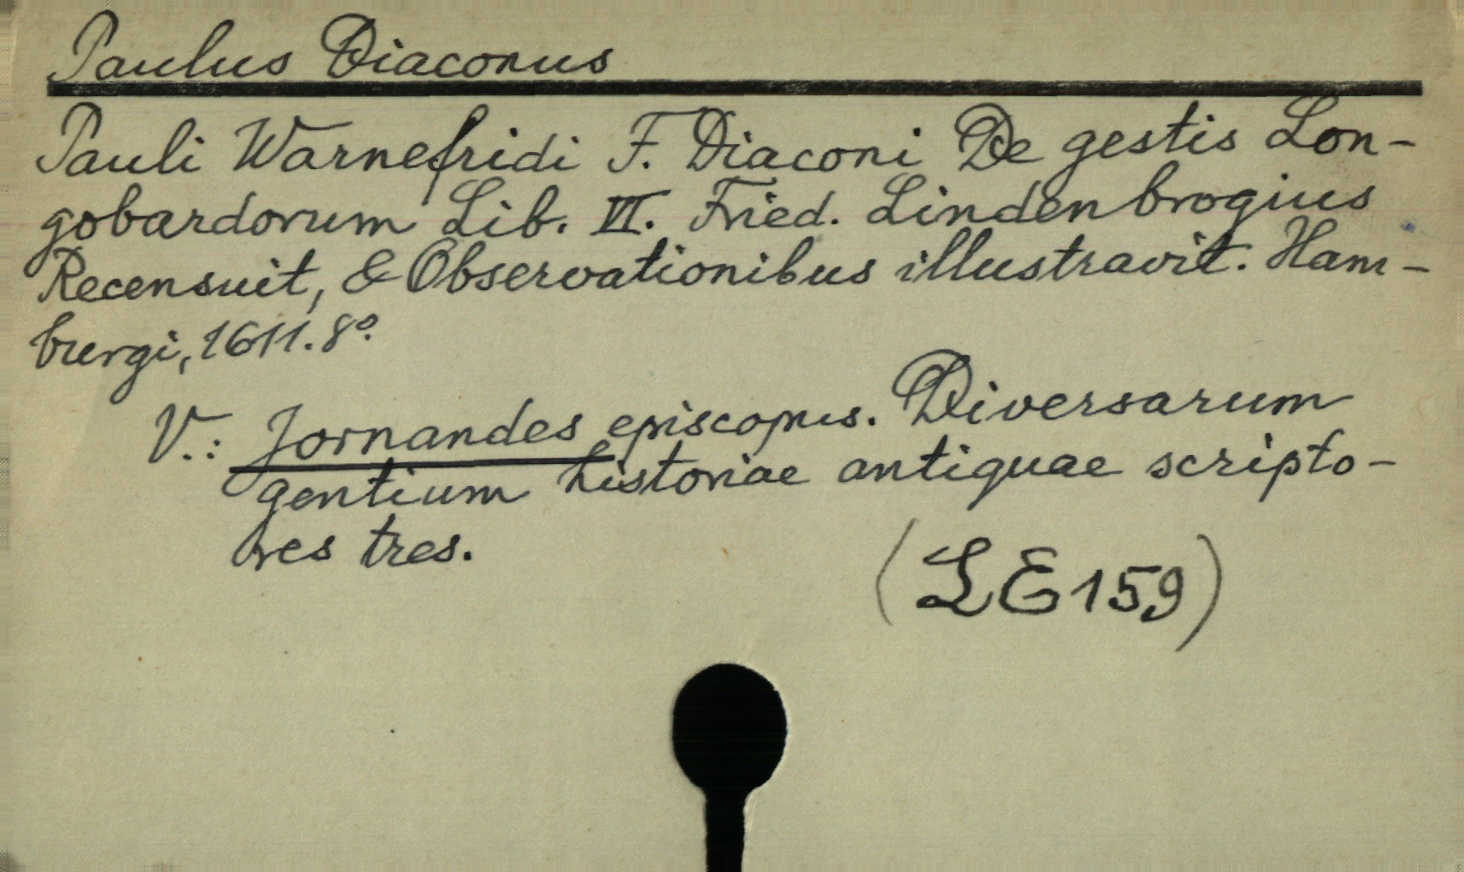 Paulus Diaconus
Pauli Warnefridi F. Diaconi De gestis Lon-
gobardorum Lib. VI. Fried. Lindenbrogius
Recensuit, & Observationibus illustravit. Ham-
burgi, 1611. 8º.
V.: Jornandes episcopus. Diversarum
gentium historiae antiquae scripto-
res tres.
(LE159)